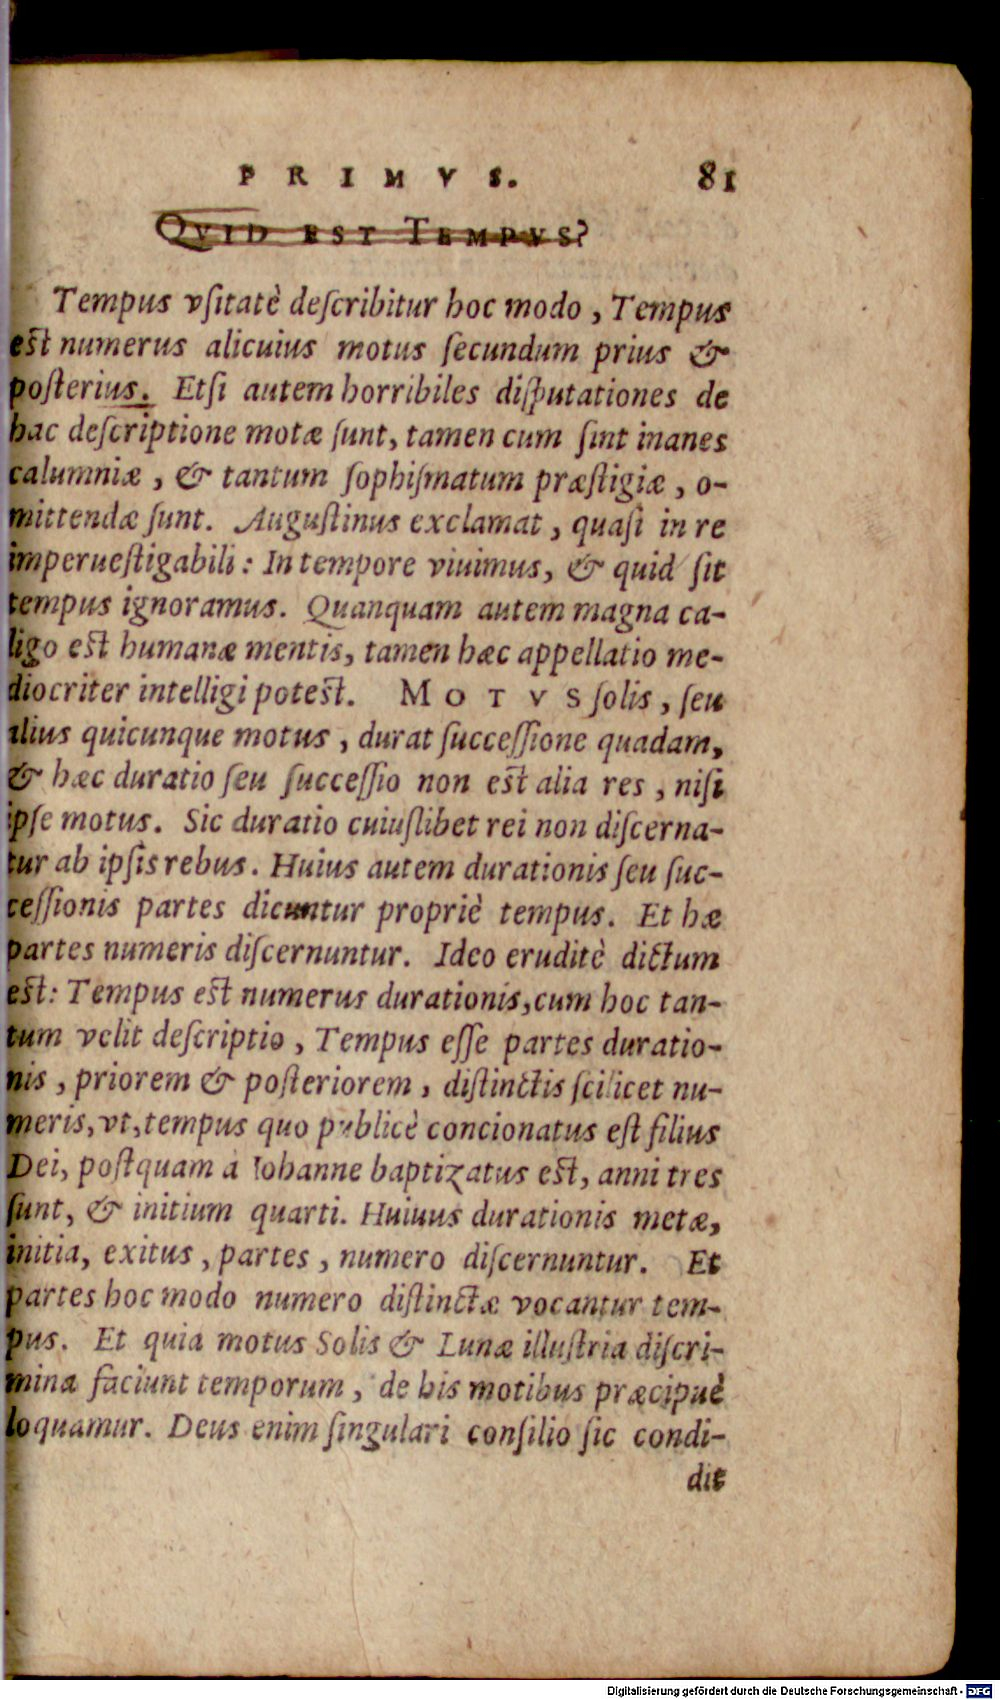 PRIMVS. 81
QVID EST TEMPVS?
Tempus vſitatè deſcribitur hoc modo, Tempus
est numerus alicuius motus ſecundum prius &
poſterius. Etſi autem horribiles diſputationes de
hac deſcriptione motæ ſunt, tamen cum ſint inanes
calumniæ, & tantum ſophiſmatum præſtigiæ, o-
mittendæ ſunt. Auguſtinus exclamat, quaſi in re
imperueſtigabili: In tempore viuimus, & quid ſit
tempus ignoramus. Quanquam autem magna ca-
ligo est humanæ mentis, tamen hæc appellatio me-
diocriter intelligi potest. MOTVS ſolis, ſeu
alius quicunque motus, durat ſucceſſione quadam,
& hæc duratio ſeu ſucceſſio non est alia res, niſi
ipſe motus. Sic duratio cuiuſlibet rei non diſcerna-
tur ab ipſis rebus. Huius autem durationis ſeu ſuc-
ceſſionis partes dicuntur propriè tempus. Et hæ
partes numeris diſcernuntur. Ideo eruditè dictum
est: Tempus est numerus durationis, cum hoc tan-
tum velit deſcriptio, Tempus eſſe partes duratio-
nis, priorem & poſteriorem, diſtinctis ſcilicet nu-
meris, vt, tempus quo publicè concionatus eſt filius
Dei, poſtquam a Iohanne baptizatus est, anni tres
ſunt, & initium quarti. Huiuus durationis metæ,
initia, exitus, partes, numero diſcernuntur. Et
partes hoc modo numero diſtinctæ vocantur tem-
pus. Et quia motus Solis & Lunæ illuſtria diſcri-
mina faciunt temporum, de his motibus præcipuè
loquamur. Deus enim ſingulari conſilio ſic condi-
dit
Digitalisierung gefördert durch die Deutsche Forschungsgemeinschaft - DFG